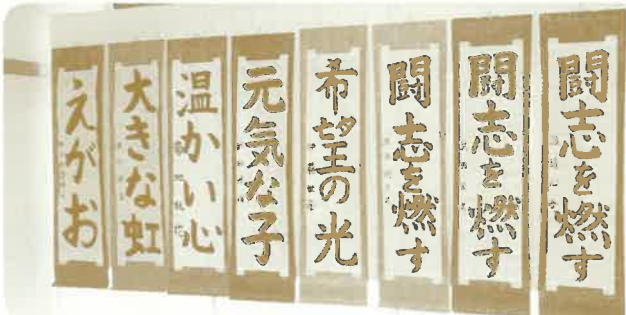 闘志を燃す
闘志を燃す
闘志を燃す
希望の光
元気な子
温かい心
大きな虹
えがお